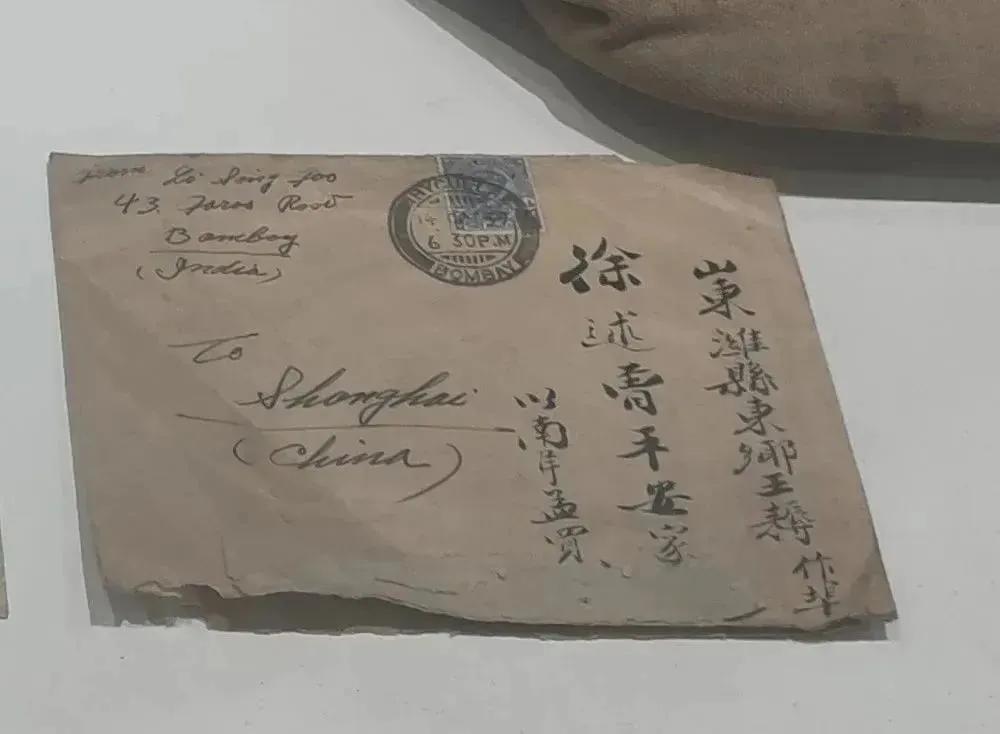 From Li Sing Foo
43. Faras Road
Bombay
(India)
BYCULLA
14
6 30P.M
BOMBAY
To
Shanghai
(China)
山東濰縣東鄉王耨
作
徐述 平安家
以南洋孟買